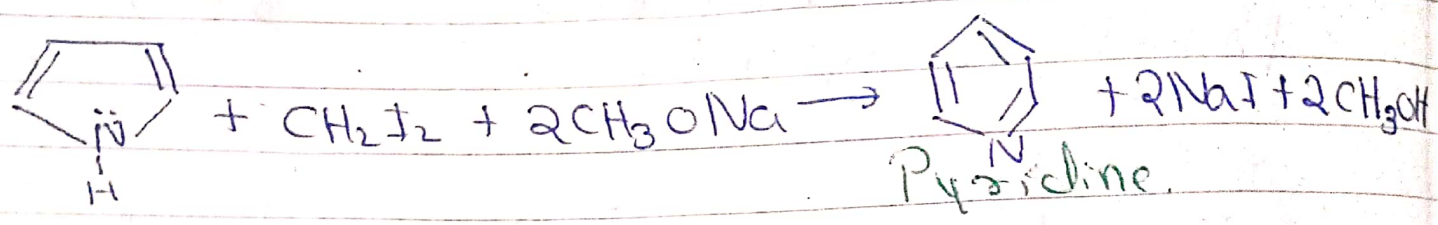 N̈ H + CH₂I₂ + 2CH₃ONa → N + 2NaI + 2CH₃OH
Pyridine.